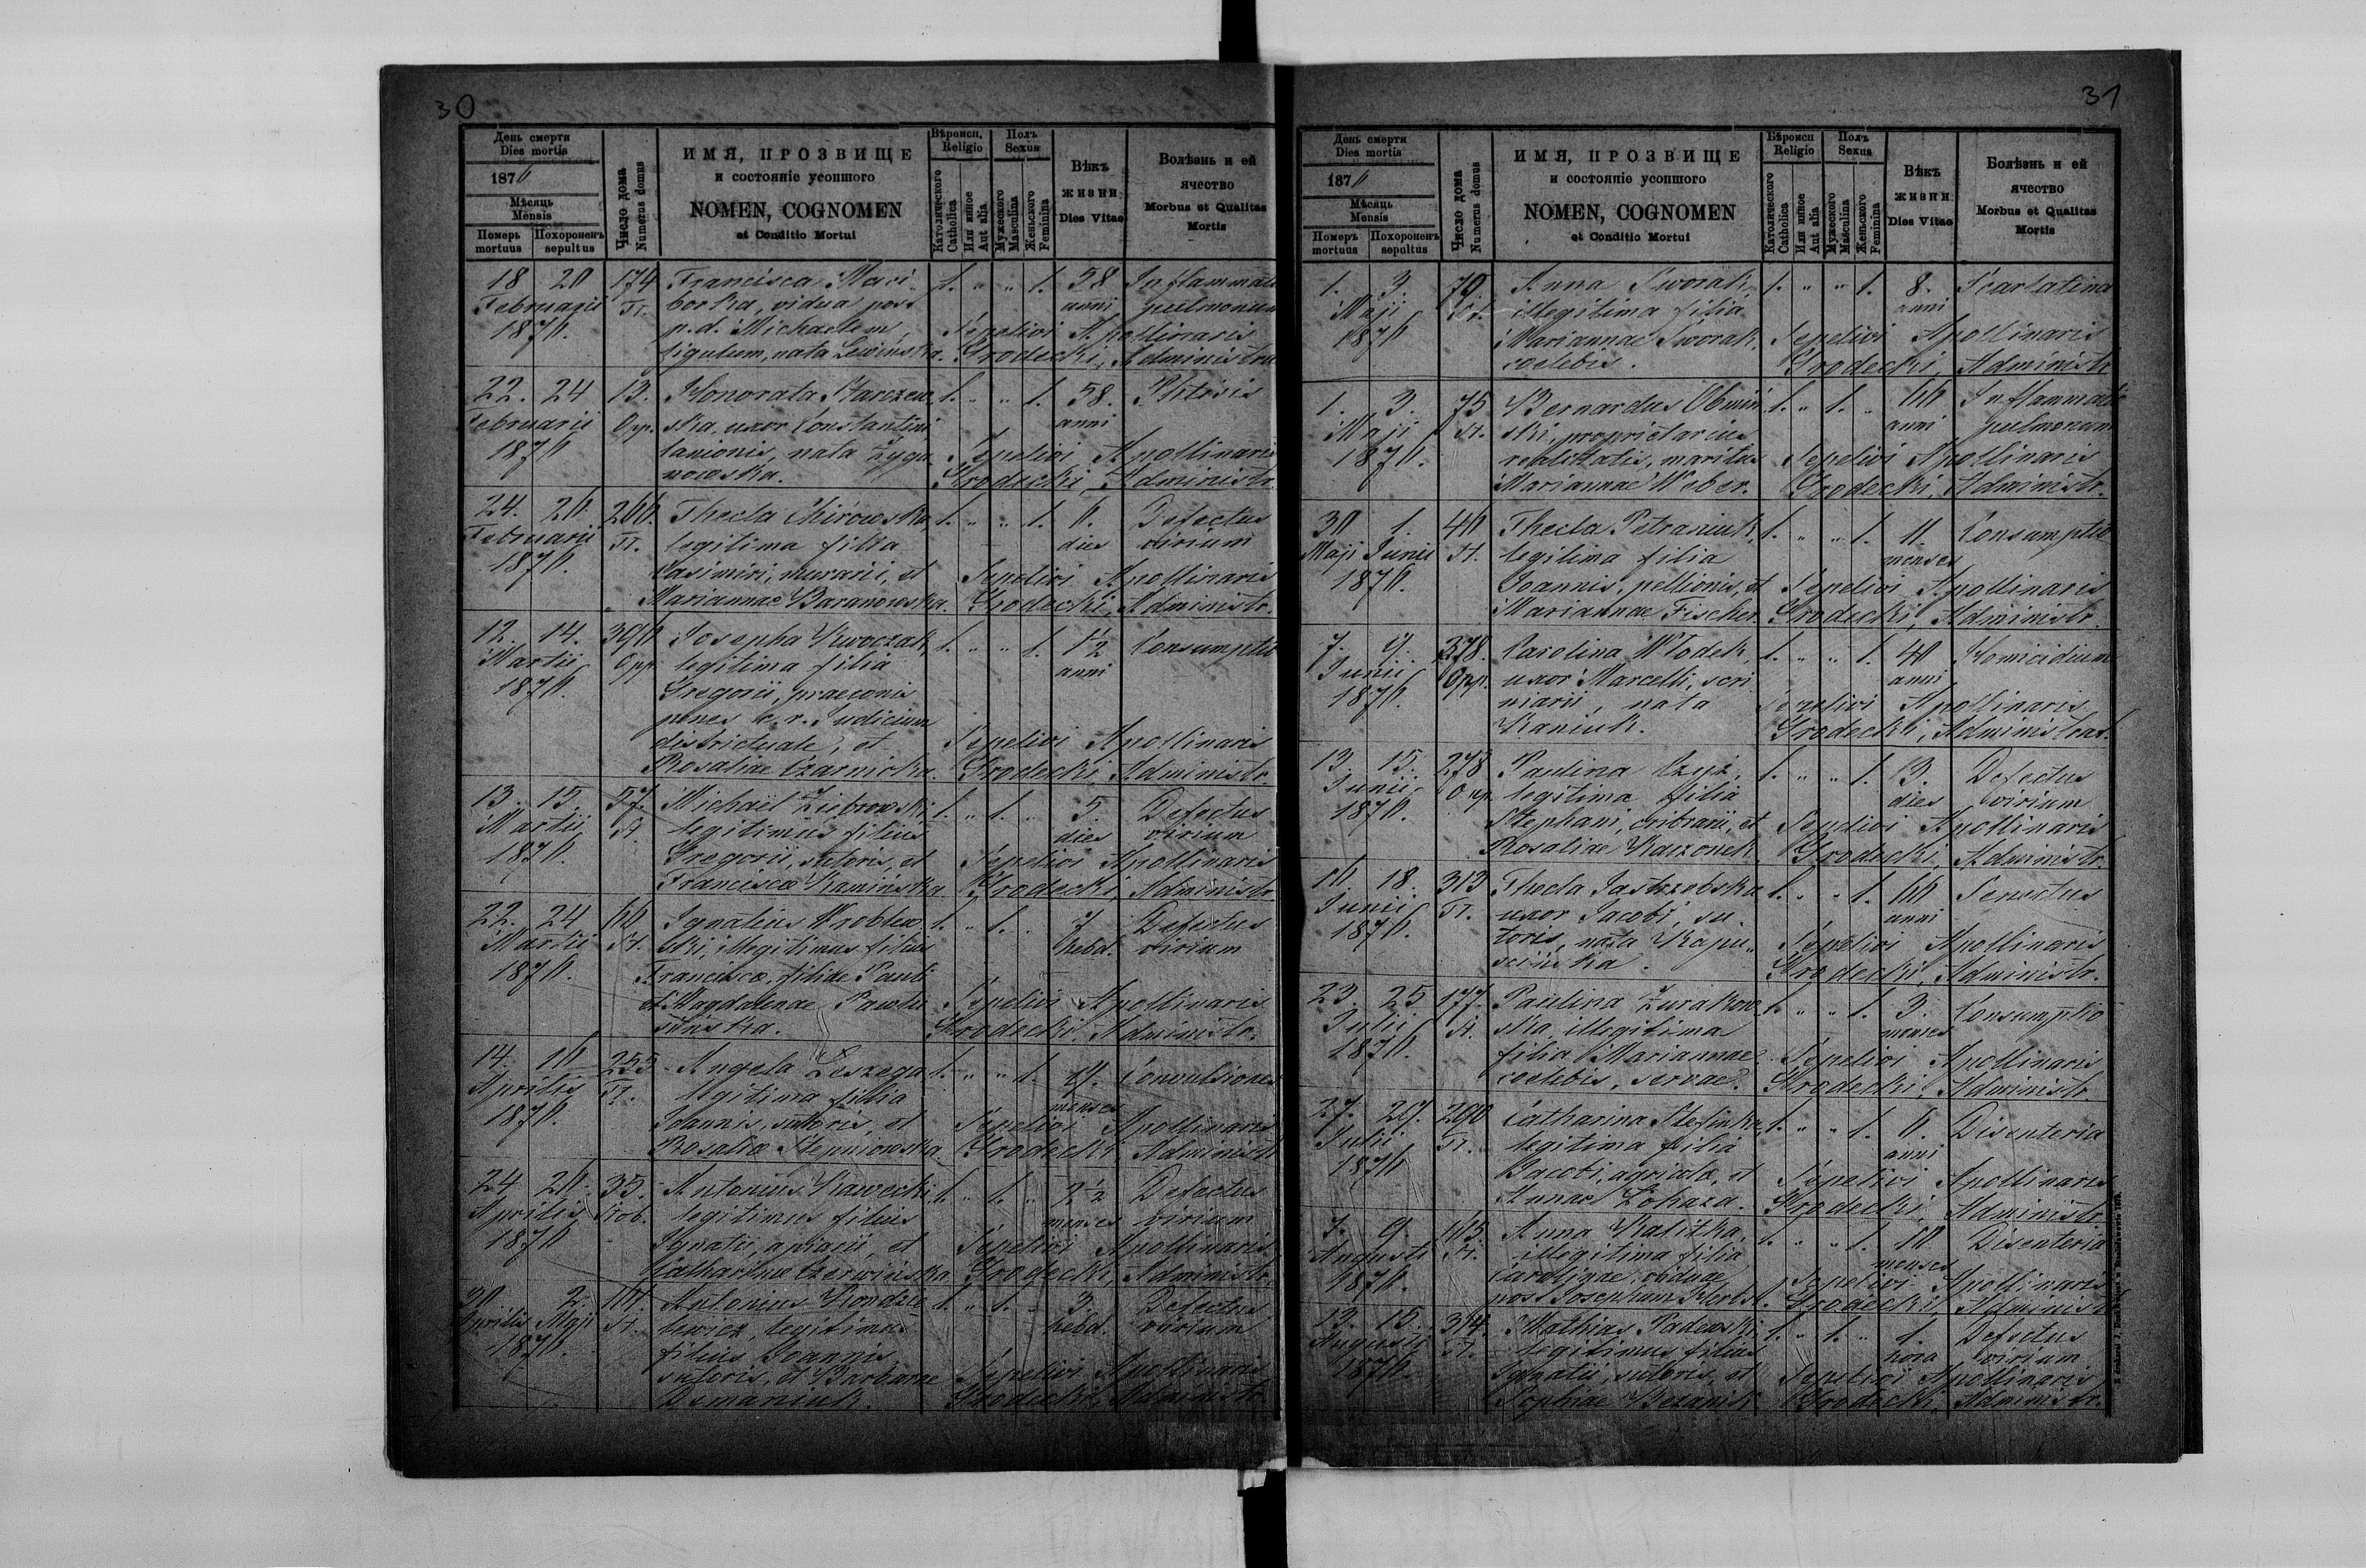 30
День смерти
Dies mortis
1876
Мѣсяць
Mensis
Померъ
mortuus
Похороненъ
sepultus
Число дома
Numerus domus
ИМЯ, ПРОЗВИЩЕ
и состояніе усопшого
NOMEN, COGNOMEN
et Conditio Mortui
Вѣроисп.
Religio
Католического
Catholica
Или инное
Aut alia
Полъ
Sexus
Мужеского
Masculina
Женьского
Feminina
Вѣкъ
жизни
Dies Vitae
Болѣзнь и ей
ячество
Morbus et Qualitas
Mortis
18 20 174 Francisca Maci- 1. " " 1. 58 Inflammatio
Februarii borska, vidua post anni pulmonum
1876. p. d. Michaelem, Sepelivi Apollinaris
figulum, nata Lewińska. Grodecki, Administr
22. 24 13. Honorata Starzew 1. " " 1. 58. Phtisis
Februarii Opp. ska, uxor Constantini anni
1876 lanionis, nata Zyga Sepelivi Apollinaris
nowska. Grodecki Administr.
24. 26. 266. Thecla Chirowska 1. " " 1. 6. Defectus
Februarii legitima filia dies virium
1876. Casimiri, murarii, et Sepelivi Apollinaris
Mariannae Baranowska. Grodecki, Administr.
12. 14. 396 Josepha Kwoczak 1. " " 1. 1½ Consumptio
Martii Opp legitima filia anni
1876. Gregorii, praeconis
penes c. r. Judicium
districtuale, et Sepelivi Apollinaris
Rosaliae Czarnicka. Grodecki, Administr.
13. 15. 57. Michaël Ziębrowski 1. " 1. " 5. Defectus
Martii legitimus filius dies virium
1876. Gregorii, sutoris, et Sepelivi Apollinaris
Francisca Kamińska. Grodecki, Administr.
22. 24 66 Ignatius Wroblew 1. " 1. " 7 Defectus
Martii ski, illegitimus filius hebd. virium
1876. Franciscae, filiae Pauli
et Magdalenae Pawlu Sepelivi Apollinaris
sińska. Grodecki, Administr.
14. 16 255 Angela Leszega 1. " " 1. 9. Convulsiones
Aprilis legitima filia menses
1876. Joannis, sutoris, et Sepelivi Apollinaris
Rosalia Stepniowska. Grodecki, Administr
24 26. 35. Antonius Kawecki 1. " 1. " 9½ Defectus
Aprilis legitimus filius menses virium
1876 Ignatii, apiarii, et Sepelivi Apollinaris
Catharinae Czerwińska. Grodecki, Administr.
30 2. Antonius Kondra 1. " 1. " 3. Defectus
Aprilis Maji lewicz, legitimus hebd. virium
1876. filius Joannis
sutoris, et Barbarae Sepelivi Apollinaris
Domaniuk. Grodecki, Administr.
31
День смерти
Dies mortis
1876
Мѣсяць
Mensis
Померъ
mortuus
Похороненъ
sepultus
Число дома
Numerus domus
ИМЯ, ПРОЗВИЩЕ
и состояніе усопшого
NOMEN, COGNOMEN
et Conditio Mortui
Вѣроисп
Religio
Католического
Catholica
Или инное
Aut alia
Полъ
Sexus
Мужеского
Masculina
Женьского
Feminina
Вѣкъ
жизни
Dies Vitae
Болѣзнь и ей
ячество
Morbus et Qualitas
Mortis
1. 3. 79 Anna Sworak 1. " " 1. 8. Scarlatina
Maji illegitima filia anni
1876 Mariannae Sworak, Sepelivi Apollinaris
coelebis. Grodecki, Administr
1. 3. 75 Bernardus Obmiń 1. " 1. " 66 Inflammatio
Maji ski, proprietarius anni pulmonum
1876. realitatis, maritus Sepelivi Apollinaris
Mariannae Weber. Grodecki, Administr.
30 1. 46 Thecla Petraniuk, 1. " " 1. 11. Consumptio
Maji Junii legitima filia menses
1876. Joannis, pellionis, et Sepelivi Apollinaris
Mariannae Fischer. Grodecki, Administr.
7. 9. 378. Carolina Włodek, 1. " " 1. 40 Homicidium
Junii Opp. uxor Marcelli, scri anni
1876. niarii, nata Sepelivi Apollinaris
Kaniuk. Grodecki, Administrat.
13. 15. 278 Paulina Czyż, 1. " " 1. 3. Defectus
Junii Opp. legitima filia dies virium
1876. Stephani, cribrarii, et Sepelivi Apollinaris
Rosaliae Karzonek. Grodecki Administr.
16 18. 313 Thecla Jastrzębska 1. " " 1. 66 Senectus
Junii uxor Jacobi, su anni
1876. toris, nata Kapu Sepelivi Apollinaris
scińska. Grodecki, Administr.
23. 25 177. Paulina Zurakow 1. " " 1. 3. Consumptio
Julii ska, illegitima menses
1876. filia Mariannae Sepelivi Apollinaris
coelebis, servae. Grodecki, Administr.
27. 29. 290 Catharina Stefinka, 1. " " 1. 6. Disenteria
Julii legitima filia anni
1876 Jacobi, agricola, et Sepelivi Apollinaris
Annae Lohaza. Grodecki Administr.
7. 9. Anna Kalitka, 1. " " 1. 10 Disenteria
Augusti illegitima filia menses
1876. Carolinae, viduae Sepelivi Apollinaris
post Josephum Herbst. Grodecki, Administ
13. 15. 314. Mathias Padewski 1. " 1. " 1. Defectus
Augusti legitimus filius hora virium
1876. Ignatii, sutoris, et Sepelivi Apollinaris
Sophiae Bezanik Grodecki, Administr.